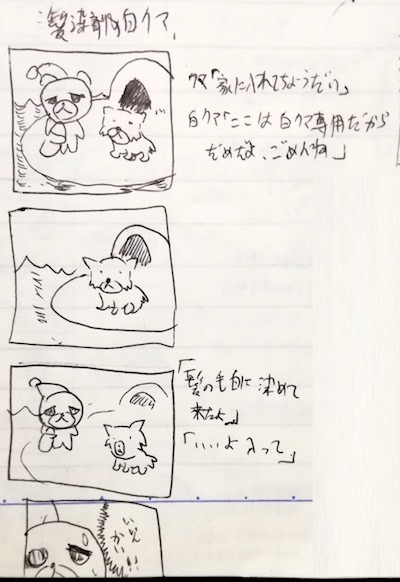 の白クマ
クマ「家に入れてちょうだい」
白クマ「ここは白クマ専用だから
だめだよ、ごめんね」
「髪の毛白に染めて
来たよ。」
「いいよ入って。」
いいん
かい